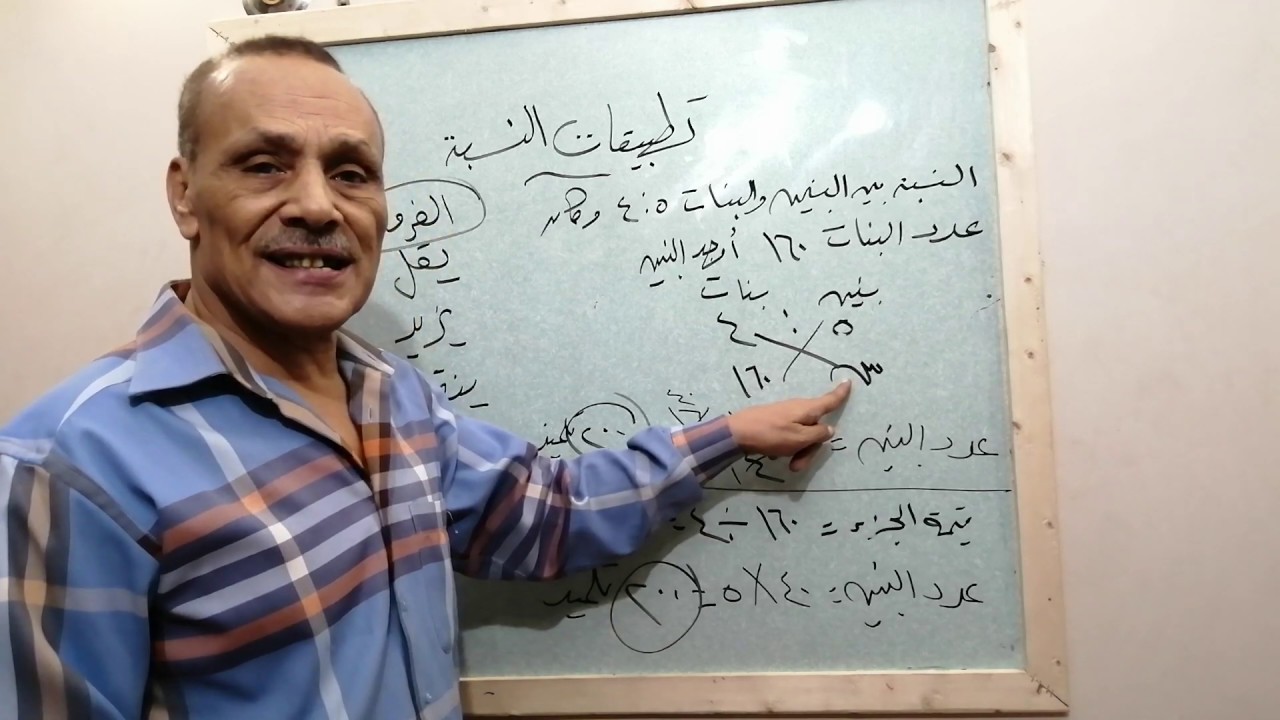 تطبيقات النسبة
النسبة بين البنين والبنات ٥ : ٤ وكان
عدد البنات ١٦٠ أوجد البنين
بنين بنات
٥ : ٤
س ١٦٠
٤٠
١٦٠
عدد البنين = ٢٠٠ تلميذ
٤
قيمة الجزء = ١٦٠ ÷ ٤ =
عدد البنين = ٤٠ × ٥ = ٢٠٠ تلميذ
يقل
يزيد